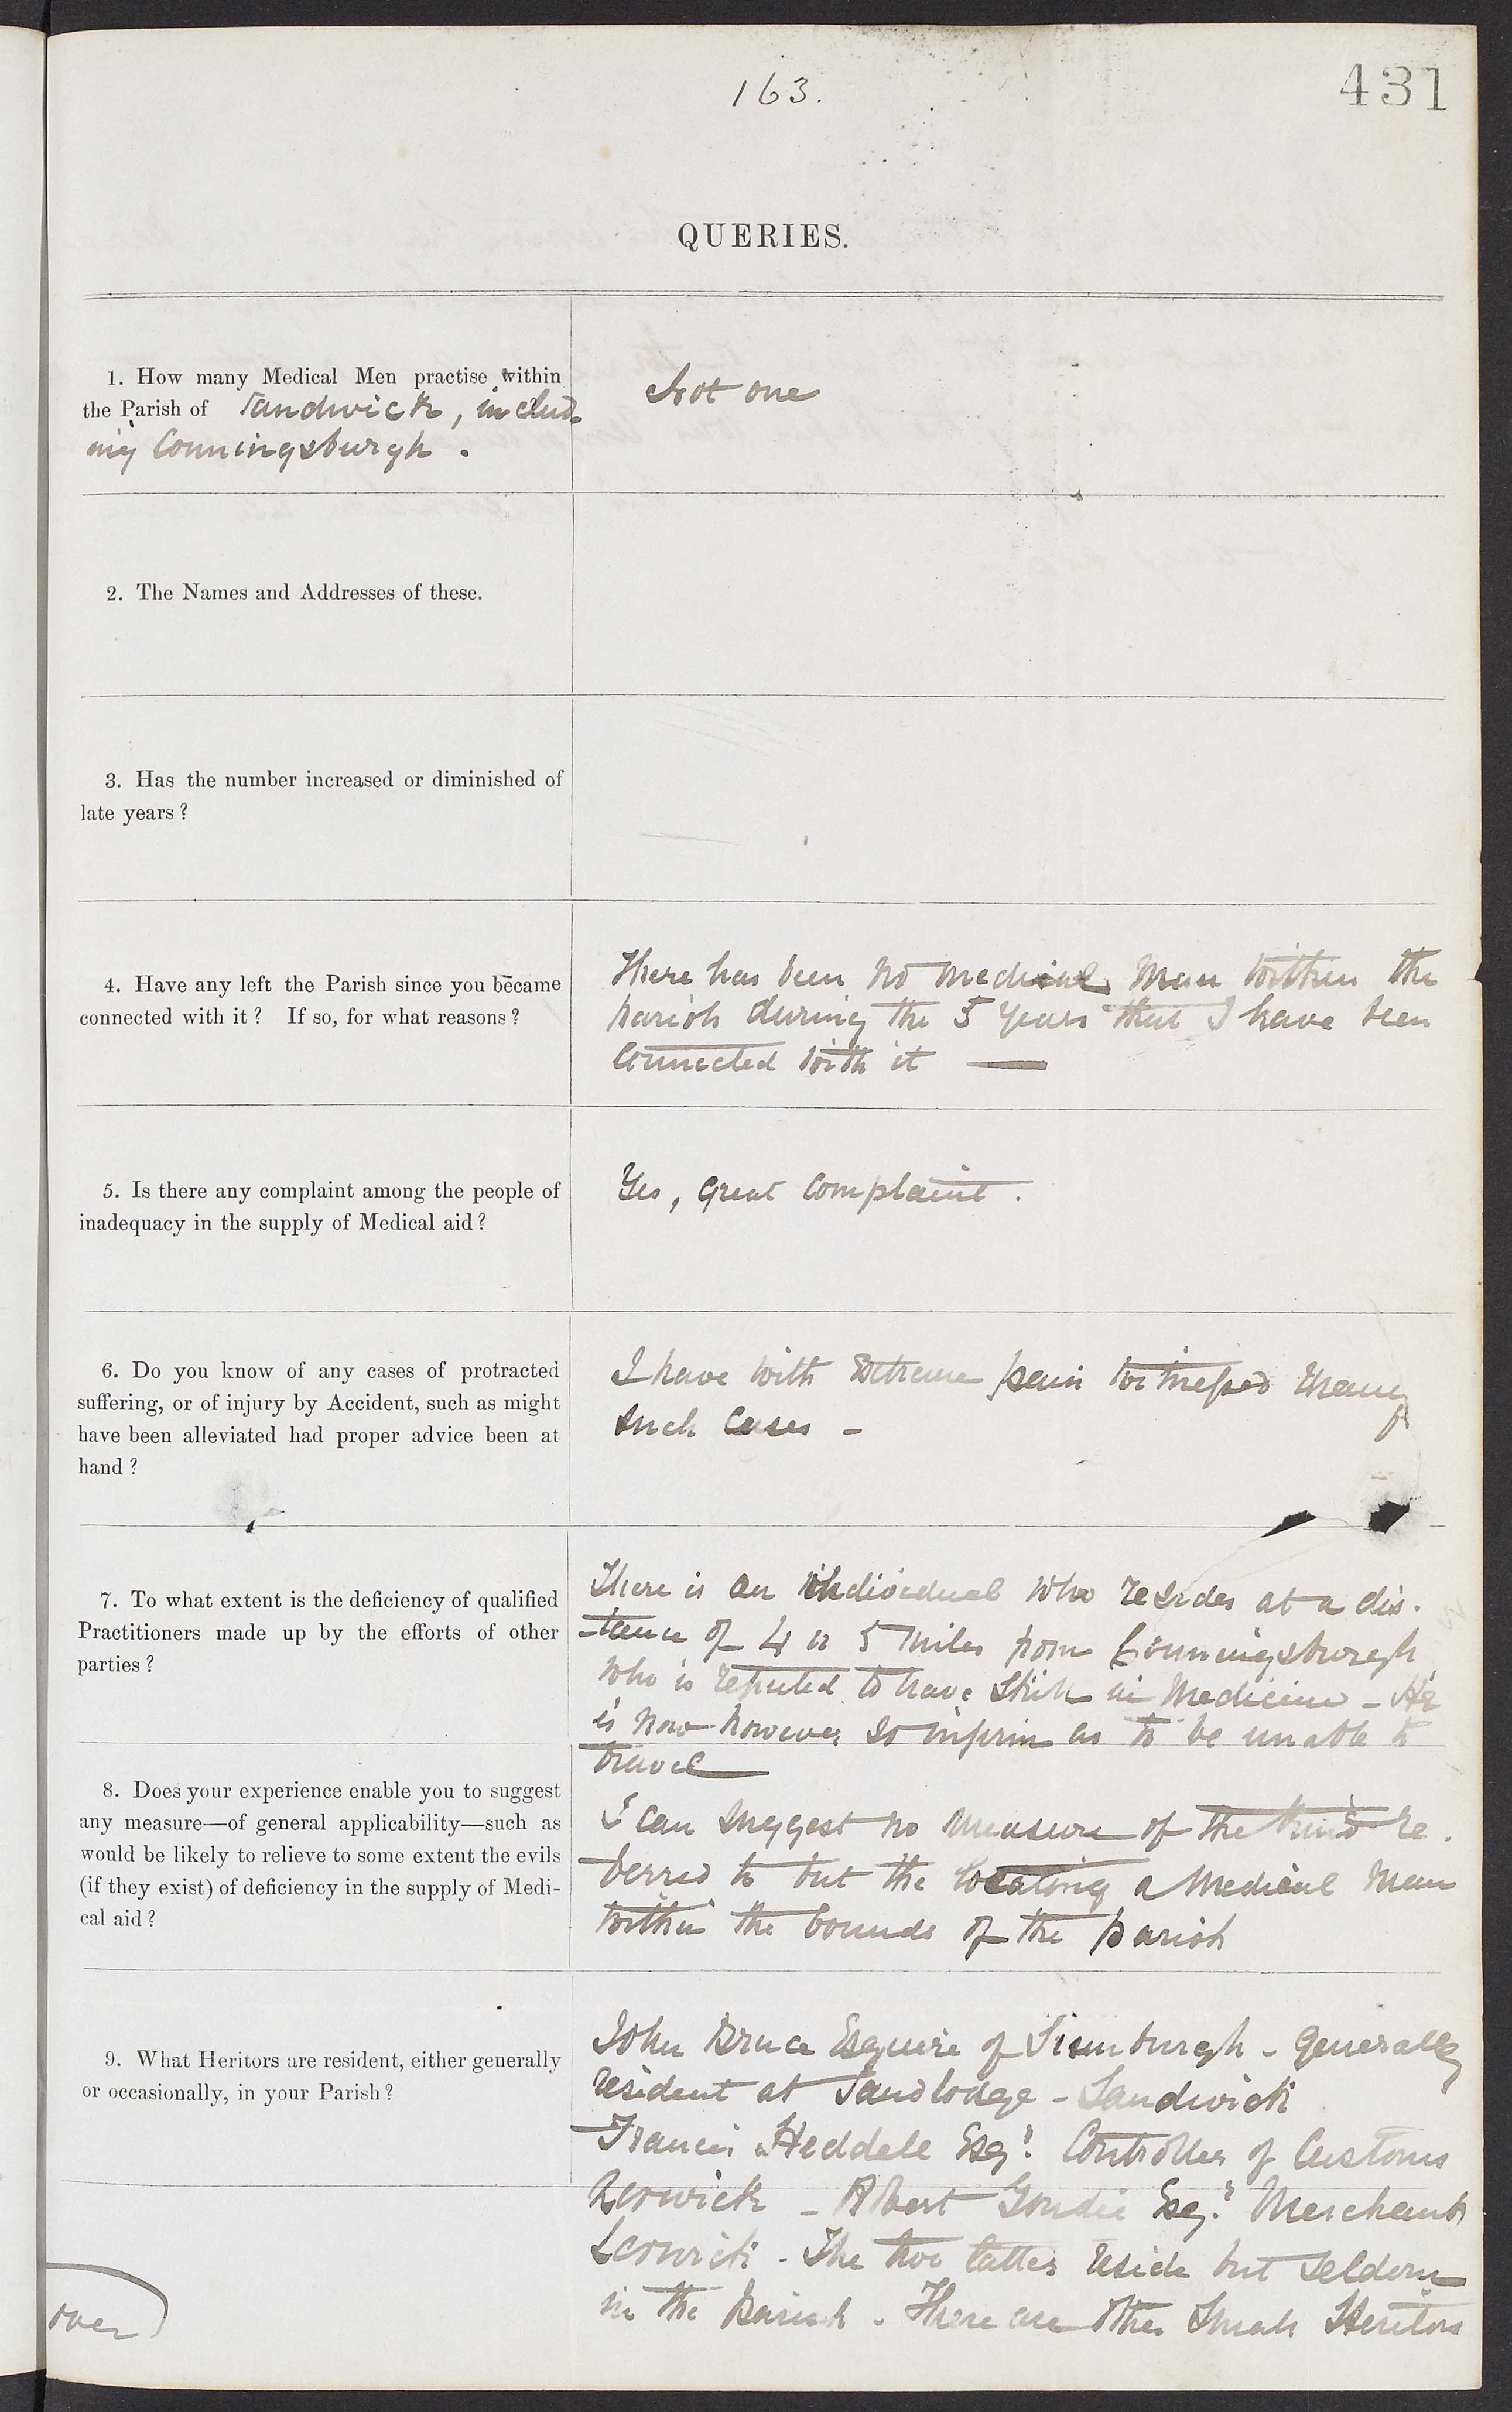 163.
431
QUERIES.
1. How many Medical Men practise within
the Parish of Sandwick, includ-
ing Conningsburgh .
Not one
2. The Names and Addresses of these.
3. Has the number increased or diminished of
late years?
4. Have any left the Parish since you became
connected with it? If so, for what reasons?
There has been no medical man within the
parish during the 5 years that I have been
connected with it —
5. Is there any complaint among the people of
inadequacy in the supply of Medical aid?
Yes, great complaint.
6. Do you know of any cases of protracted
suffering, or of injury by Accident, such as might
have been alleviated had proper advice been at
hand?
I have with extreme pain witnessed many
such cases -
7. To what extent is the deficiency of qualified
Practitioners made up by the efforts of other
parties?
There is an individual who resides at a dis-
-tance of 4 or 5 miles from Conningsburgh
who is reputed to have skill in Medicine - He
is now however so infirm as to be unable to
travel
8. Does your experience enable you to suggest
any measure—of general applicability—such as
would be likely to relieve to some extent the evils
(if they exist) of deficiency in the supply of Medi-
cal aid?
I can suggest no measure of the kind re-
ferred to but the locating a Medical man
within the bounds of the parish
9. What Heritors are resident, either generally
or occasionally, in your Parish?
John Bruce Esquire of Sumburgh - generally
resident at Sandlodge - Sandwick
Francis Heddell Esqr. Controller of Customs
Lerwick - Robert Goudie Esqr. Merchant
Lerwick - The two latter reside but seldom
in the Parish . There are other small Heritors
over